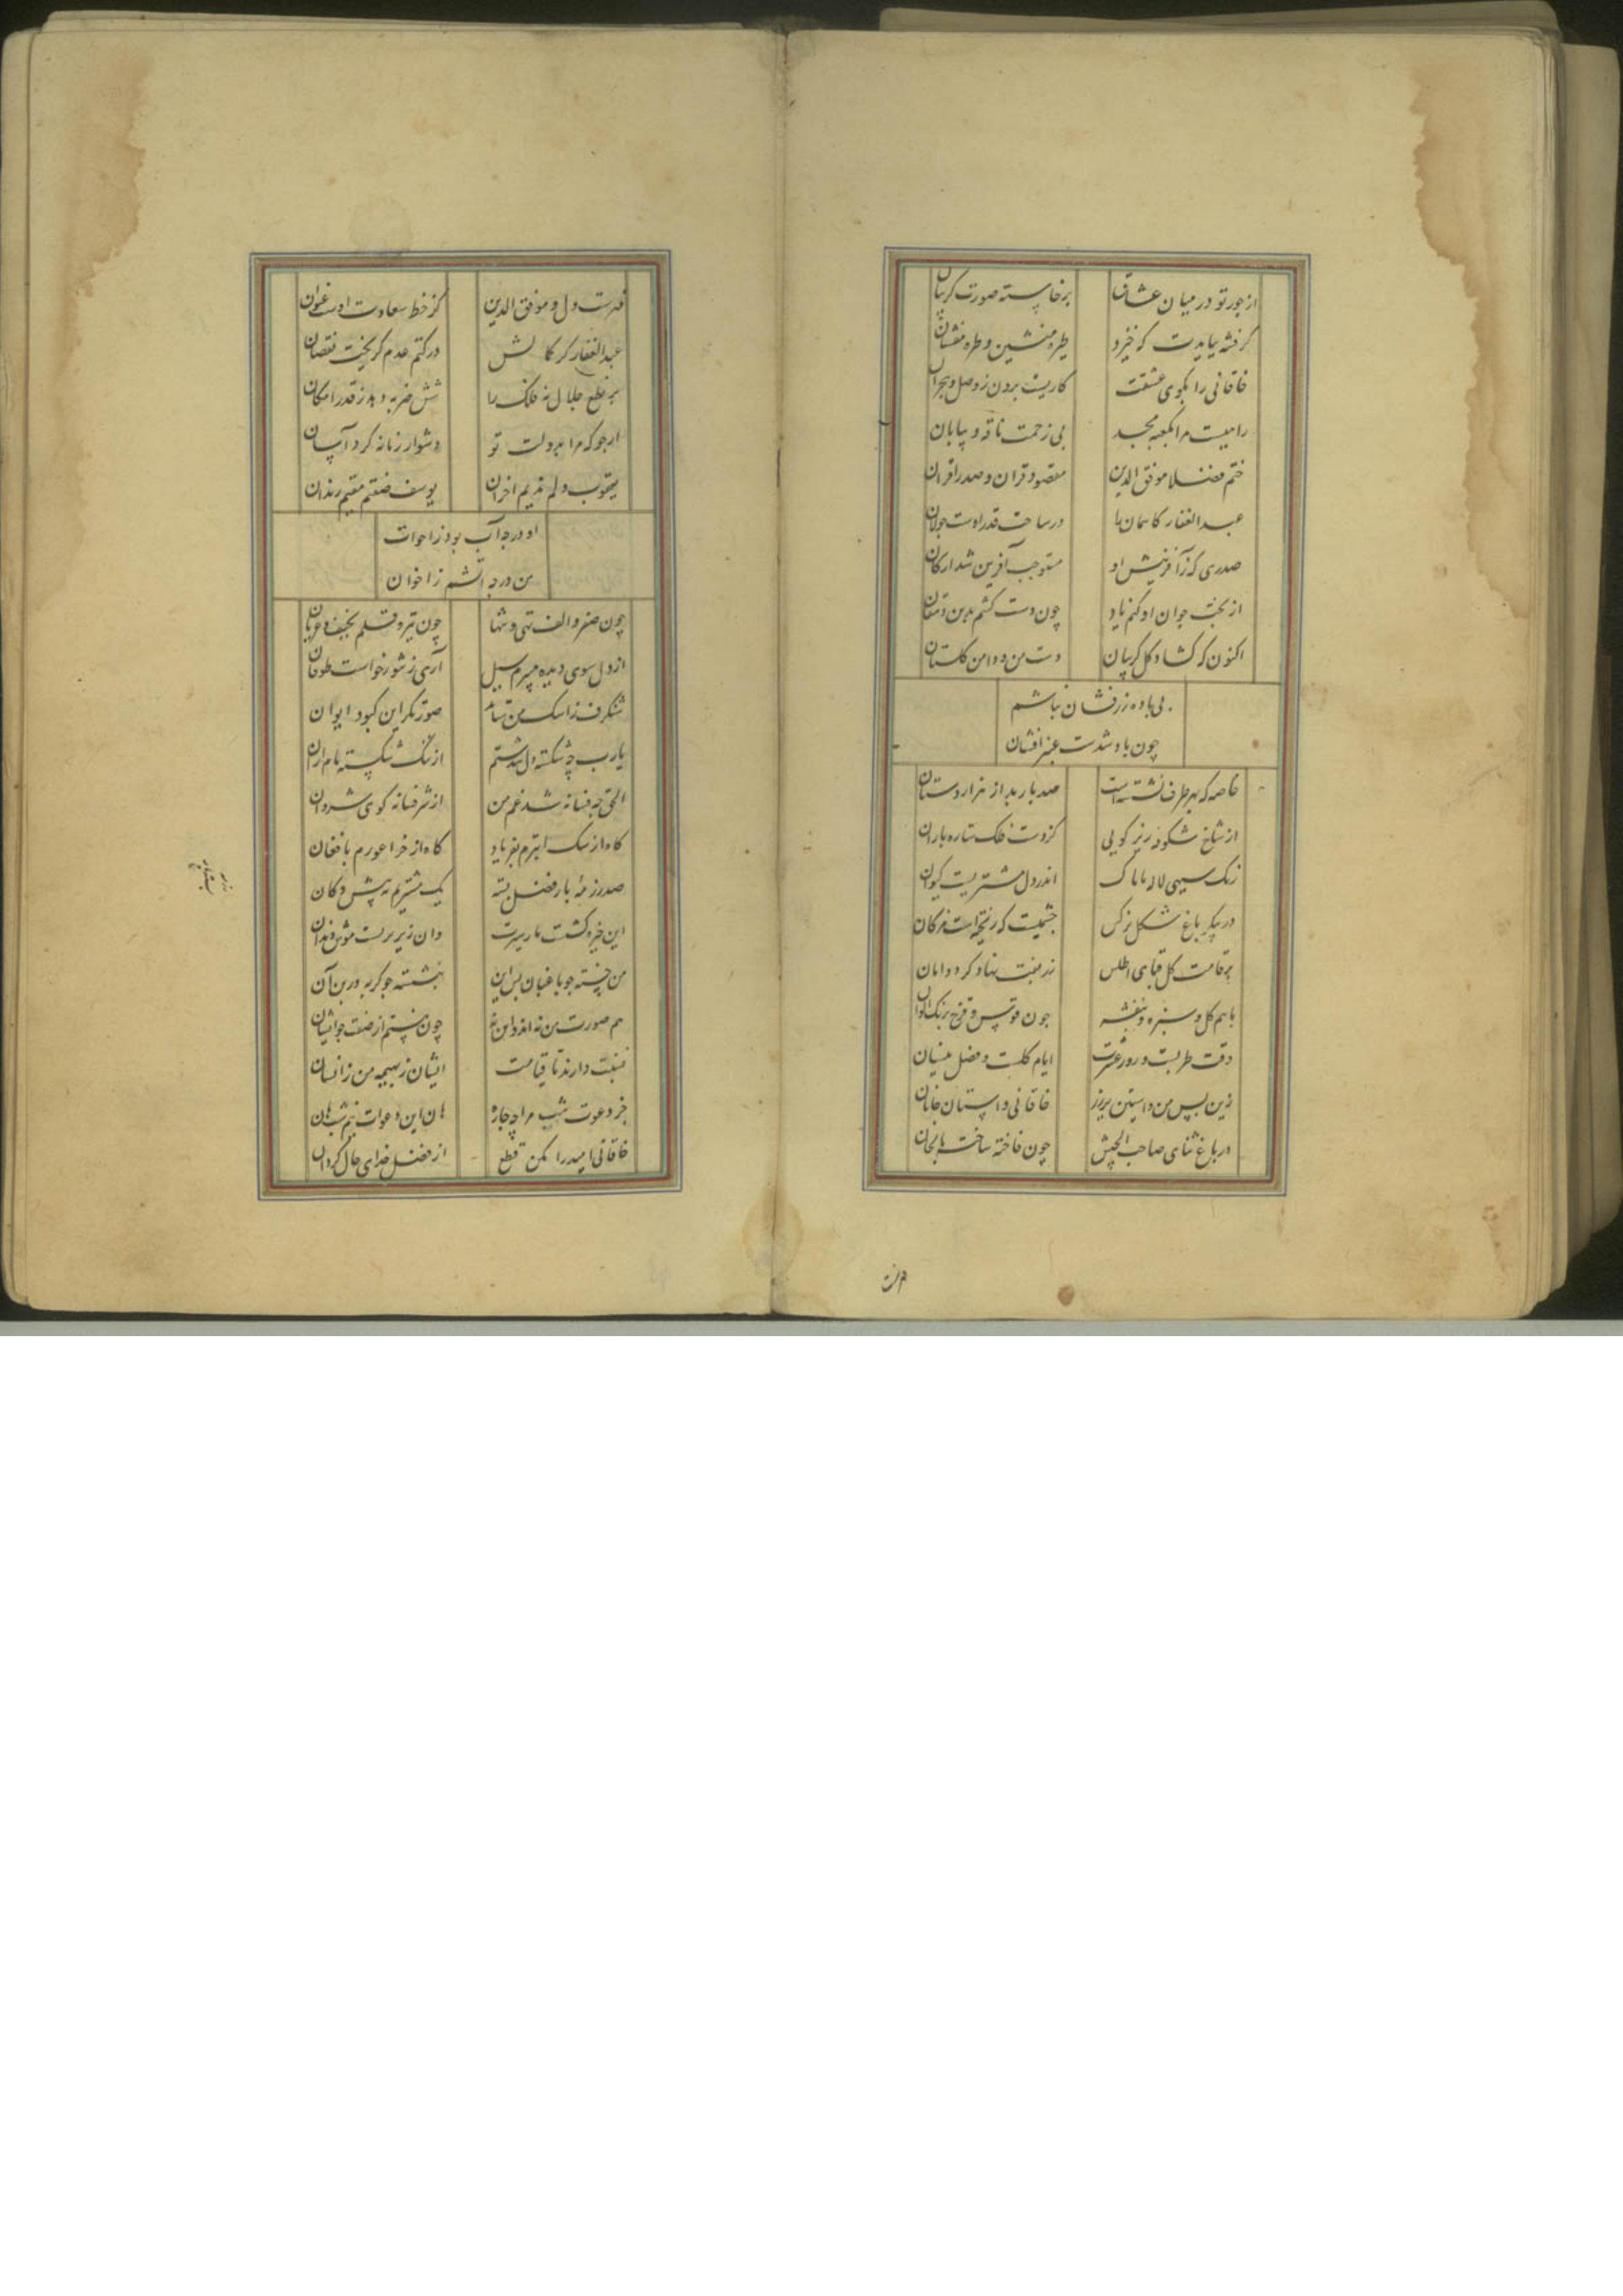 از جور تو در میان عشاق
برخاسته صورت کریبان
کر فتنه بیایدت که خیزد
طیره منشین و طره مفشان
خاقانی را بکوی عشقت
کاریست برون ز وصل و هجران
راهیست مرا بکعبه مجد
بی زحمت ناقه و بیابان
ختم فضلا موفق الدین
مقصود قران و صدر اقران
عبد الغفار کاسمان را
در ساحت قدر اوست جولان
صدری که ز آفرینش او
مستوجب آفرین شد ارکان
از بخت جوان او کنم یاد
چون دست کشم بدین
اکنون که کشاد کل کریبان
دست من و دامن کلستان
بی باده زرفشان نباشم
چون باد شدست عنبر افشان
خاصه که بهر طرف نشسته است
صد باربد از هزار دستان
از شاخ شکوفه ریز کویی
کزدست فلک ستاره باران
رنک سیهی لاله
اندر دل مشتریست کیوان
در پیکر باغ شکل نرکس
چشمیست که ریخته است مژکان
بر قامت کل قبای اطلس
زربفت نهاد کرد دامان
با هم کل و سبزه و بنفشه
چون قوس و قزح برنک الوان
وقت طربست و روز عشرت
ایام کلست و فصل نیسان
زین پس من و آستین پر زر
خاقانی و آستان خاقان
در باغ ثنای صاحب الجیش
چون فاخته ساخت
فهرست دول موفق الدین
کز خط سعادت اوست عنوان
عبد الغفار کز کمالش
در کتم عدم کریخت نقصان
بر نطع جلال نه فلک را
شش ضربه دهد ز قدر امکان
ارجو که مرا بدولت تو
دشوار زمانه کردد آسان
یعقوب دلم ندیم احزان
یوسف صفتم مقیم زندان
او در چه آب بود ز اخوت
من در چه آتشم ز اخوان
چون صفر و الف تهی و تنها
چون تیر و قلم نحیف و عریان
از دل سوی دیده میبرم سیل
آری ز تنور خاست طوفان
شنکرف ز اشک من ستاند
صورتکر این کبود ایوان
یا رب چه شکسته دل شدستم
از ننک شکسته نام اران
الحق چه فسانه شد غم من
از شر فسانه کوی شروان
کاه از سک ابترم بفریاد
کاه از خر اعورم بافغان
صد رزمه بار فضل بسته
یک مشتریم نه پیش دکان
این خیره کشست مار سیرت
وان زیر برست موش دندان
من خسته چو باغبان پس این
بنشسته چو کربه در بن آن
هم صورت من نه اند و این به
چون نیستم از صفت چو ایشان
نسبت دارند تا قیامت
ایشان ز بهیمه من ز انسان
جز دعوت شب مرا چه چاره
هان این دعوات نیم شب هان
خاقانی امید را مکن قطع
از فضل خدای حال کردان